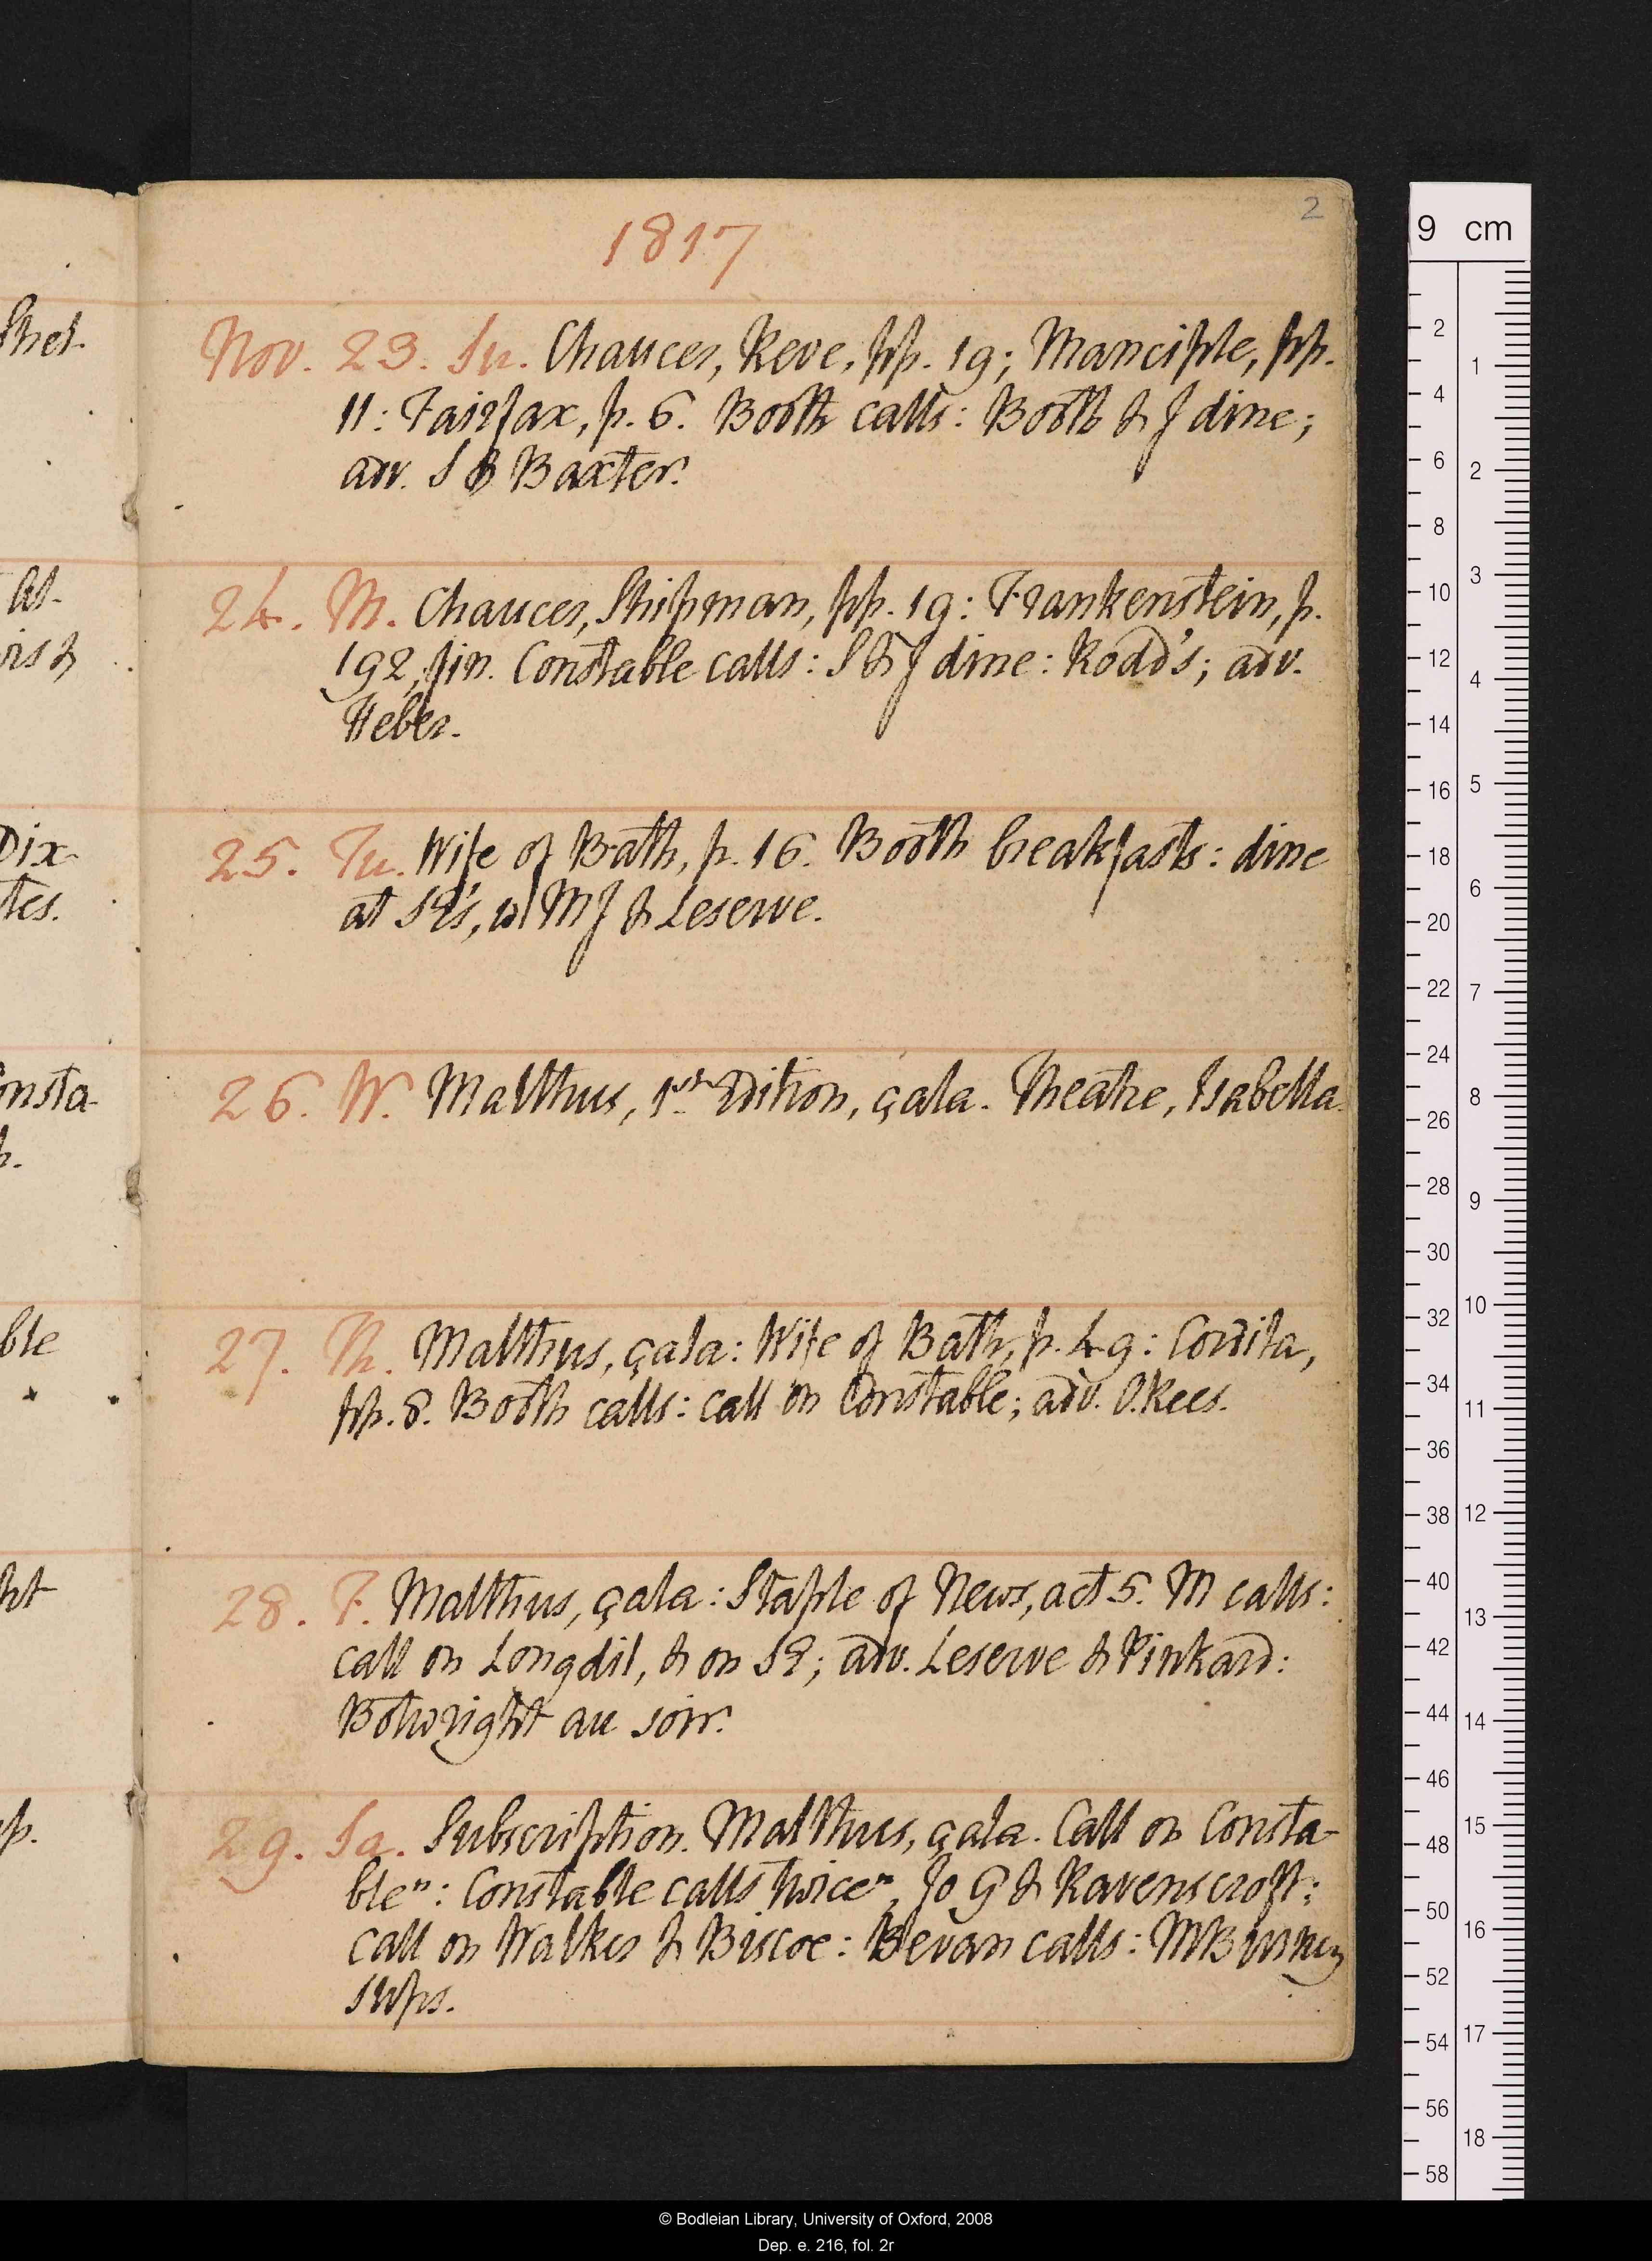 2
1817
Nov. 23. Su. Chaucer, Reve, pp. 19; Manciple, pp.
11: Fairfax, p. 6. Booth calls: Booth & J dine;
adv. S B Baxter.
24. M. Chaucer, Shipman, pp. 19: Frankenstein, p.
192, fin. Constable calls: S & J dine: Rodd's; adv.
Heber.
25. Tu. Wife of Bath, p. 16. Booth breakfasts: dine
at SP's, w MJ & Leserve.
26. W. Malthus, 1st Edition, çala. Theatre, Isabella.
27. Th. Malthus, çala: Wife of Bath, p. 49: Corvita,
pp. 8. Booth calls: call on Constable; adv. O. Rees.
28. F. Malthus, çala: Staple of News, act 5. M calls:
call on Longdil, & on SP; adv. Leserve & Pinkard:
Botwright au soir.
29. Sa. Subscription. Malthus, çala. Call on Consta-
ble n: Constable calls twice n, Jo G & Ravenscroft:
call on Walker & Biscoe: Bevan calls: MBurney
sups.
Shel-
At-
vis &
Dix-
tes.
onsta-
ble
ht
p.
9 cm
2
4
6
8
10
12
14
16
18
20
22
24
26
28
30
32
34
36
38
40
42
44
46
48
50
52
54
56
58
1
2
3
4
5
6
7
8
9
10
11
12
13
14
15
16
17
18
© Bodleian Library, University of Oxford, 2008
Dep. e. 216, fol. 2r